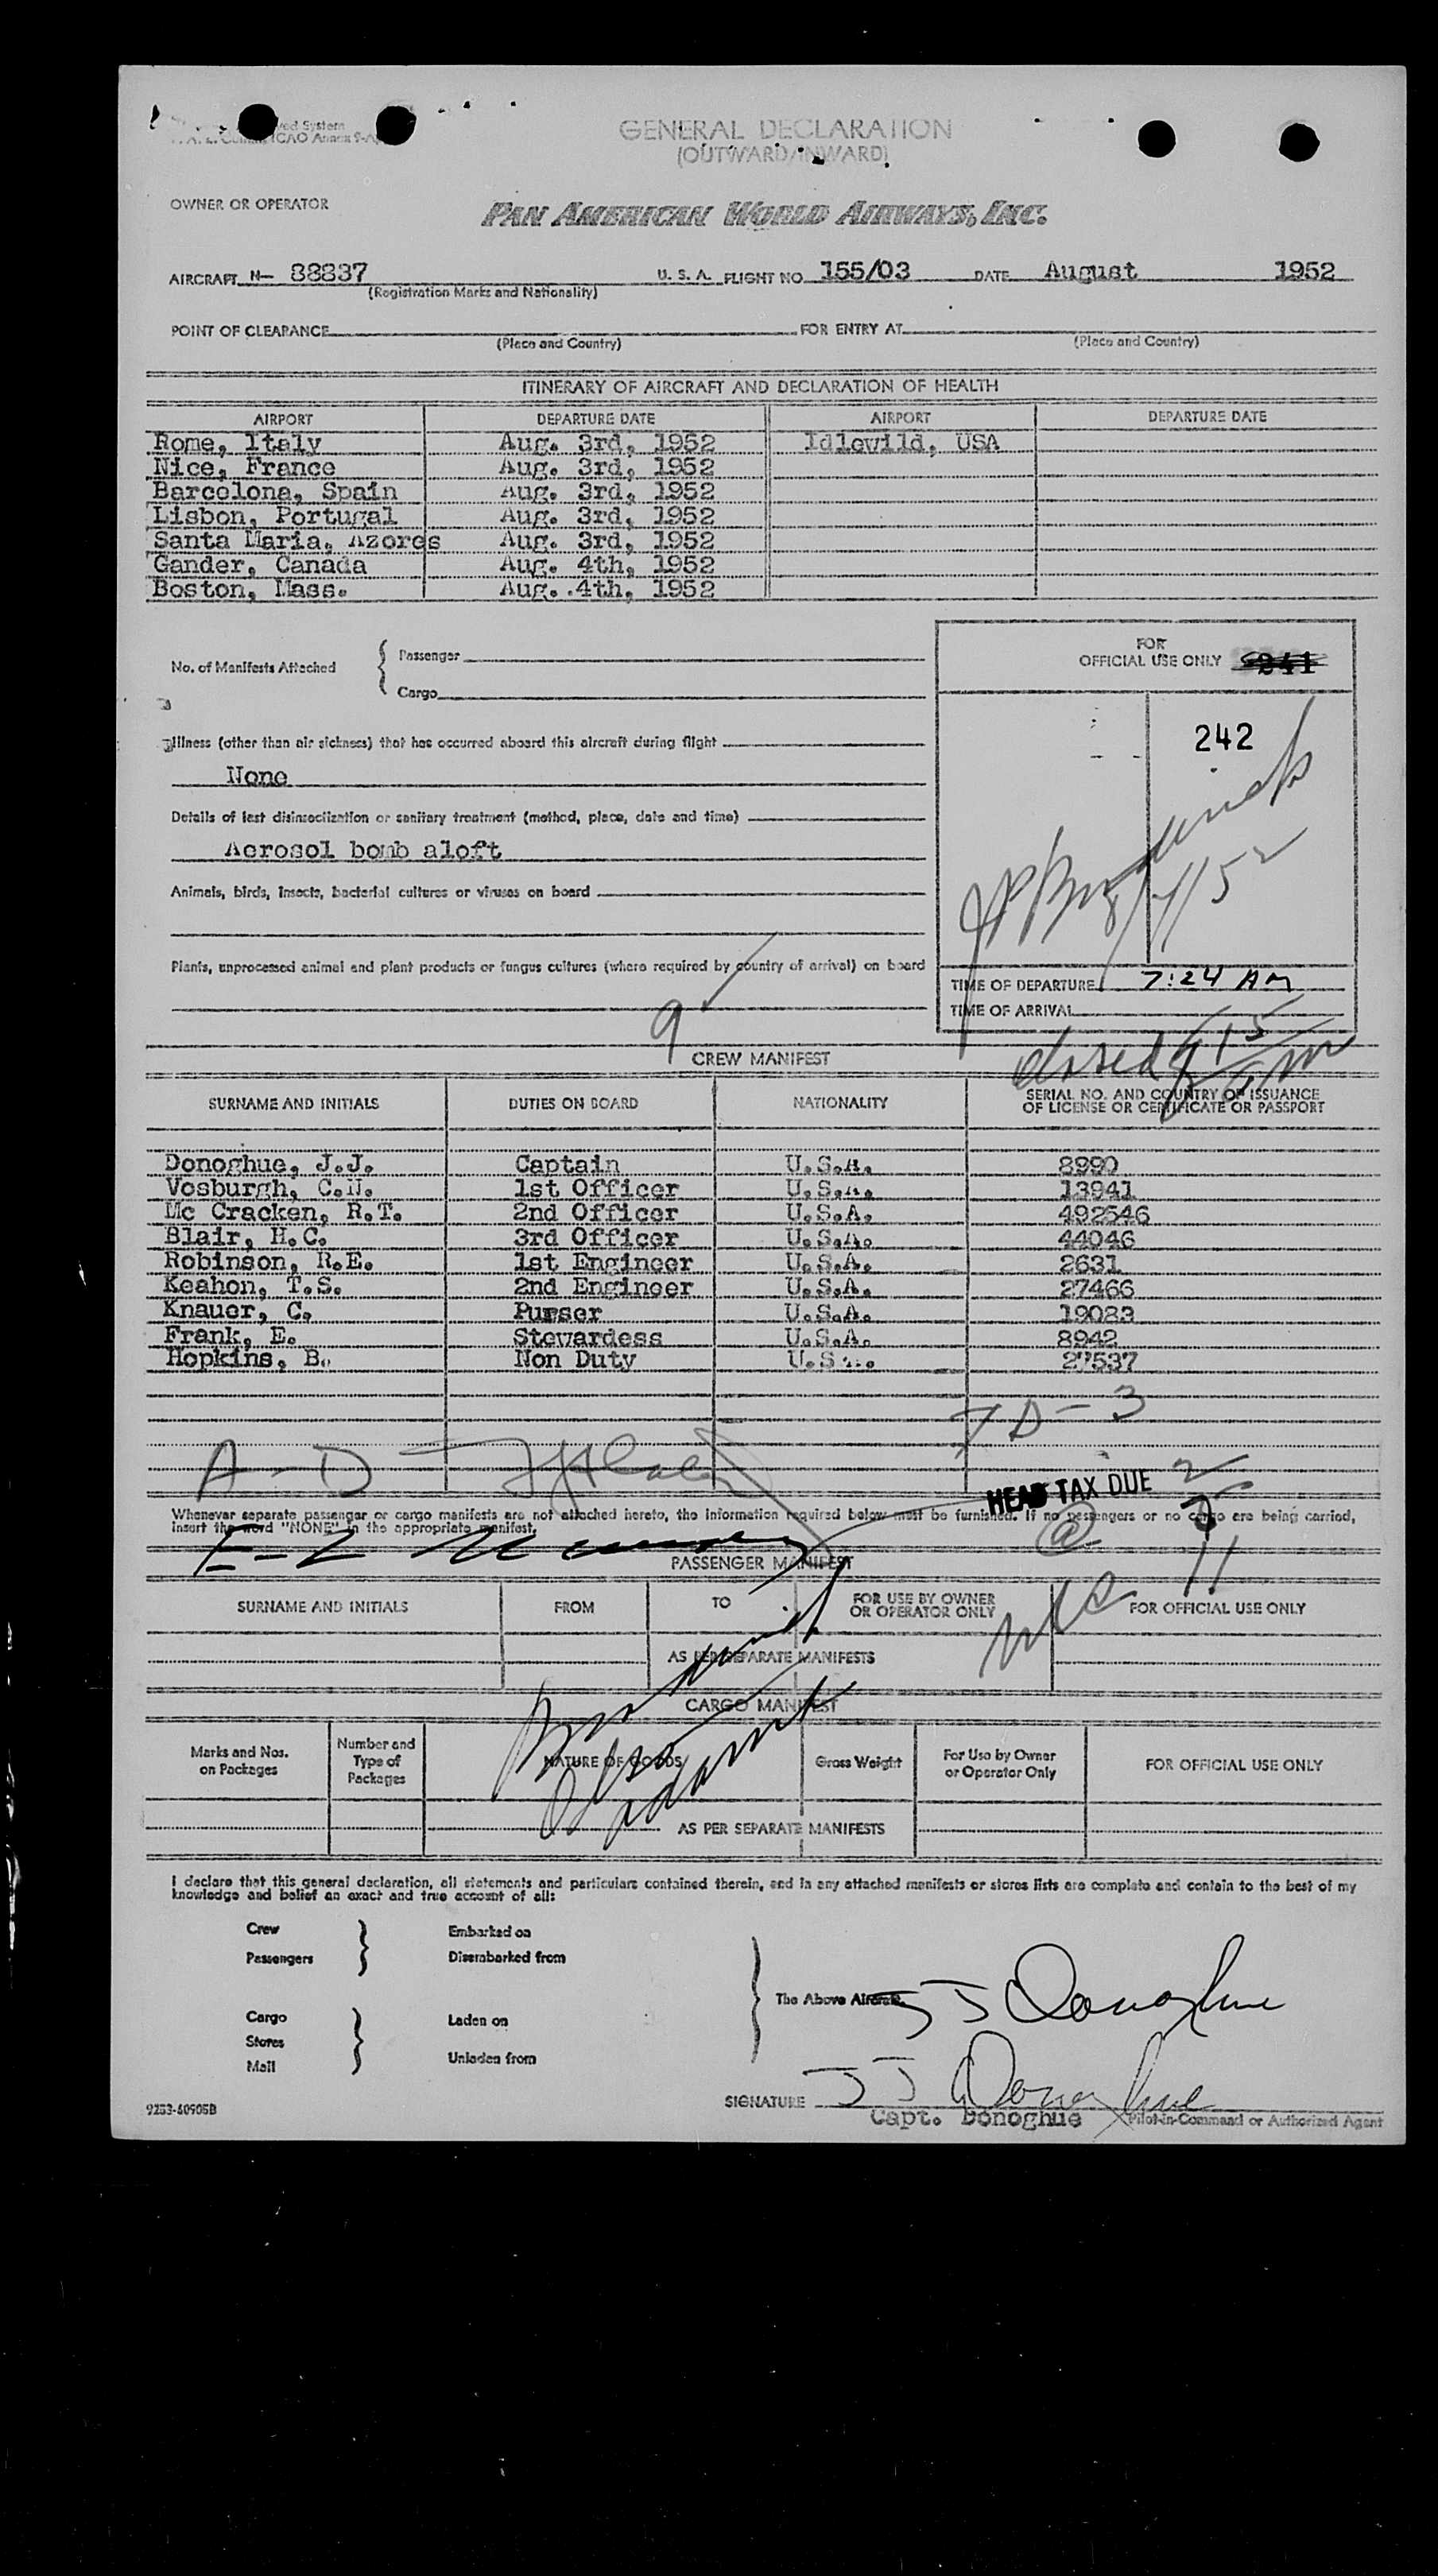 ved System
ICAO Annex 9-A
GENERAL DECLARATION
(OUTWARD/INWARD)
OWNER OR OPERATOR
PAN AMERICAN WORLD AIRWAYS, INC.
AIRCRAFT N— 88837 U. S. A. FLIGHT NO. 155/03 DATE August 1952
(Registration Marks and Nationality)
POINT OF CLEARANCE FOR ENTRY AT
(Place and Country) (Place and Country)
ITINERARY OF AIRCRAFT AND DECLARATION OF HEALTH
AIRPORT DEPARTURE DATE AIRPORT DEPARTURE DATE
Rome, Italy Aug. 3rd, 1952 Idlewild, USA
Nice, France Aug. 3rd, 1952
Barcelona, Spain Aug. 3rd, 1952
Lisbon, Portugal Aug. 3rd, 1952
Santa Maria, Azores Aug. 3rd, 1952
Gander, Canada Aug. 4th, 1952
Boston, Mass. Aug. 4th, 1952
FOR
OFFICIAL USE ONLY 241
No. of Manifests Attached { Passenger
Cargo
242
Illness (other than air sickness) that has occurred aboard this aircraft during flight
None
Details of last disinsectization or sanitary treatment (method, place, date and time)
Aerosol bomb aloft
Animals, birds, insects, bacterial cultures or viruses on board
Plants, unprocessed animal and plant products or fungus cultures (where required by country of arrival) on board
TIME OF DEPARTURE 7:24 AM
TIME OF ARRIVAL
9
CREW MANIFEST
SURNAME AND INITIALS DUTIES ON BOARD NATIONALITY SERIAL NO. AND COUNTRY OF ISSUANCE
OF LICENSE OR CERTIFICATE OR PASSPORT
Donoghue, J.J. Captain U.S.A. 8990
Vosburgh, C.N. 1st Officer U.S.A. 13941
Mc Cracken, R.T. 2nd Officer U.S.A. 492546
Blair, H.C. 3rd Officer U.S.A. 44046
Robinson, R.E. 1st Engineer U.S.A. 2631
Keahon, T.S. 2nd Engineer U.S.A. 27466
Knauer, C. Purser U.S.A. 19083
Frank, E. Stewardess U.S.A. 8942
Hopkins, B. Non Duty U.S.A. 27537
D-3
A-D
HEAD TAX DUE 2
Whenever separate passenger or cargo manifests are not attached hereto, the information required below must be furnished. If no passengers or no cargo are being carried,
insert the word "NONE" in the appropriate manifest.
@
E-Z
PASSENGER MANIFEST
SURNAME AND INITIALS FROM TO FOR USE BY OWNER
OR OPERATOR ONLY FOR OFFICIAL USE ONLY
AS PER SEPARATE MANIFESTS
CARGO MANIFEST
Marks and Nos.
on Packages Number and
Type of
Packages NATURE OF GOODS Gross Weight For Use by Owner
or Operator Only FOR OFFICIAL USE ONLY
AS PER SEPARATE MANIFESTS
I declare that this general declaration, all statements and particulars contained therein, and in any attached manifests or stores lists are complete and contain to the best of my
knowledge and belief an exact and true account of all:
Crew Embarked on
Passengers Disembarked from
The Above Aircraft. J J Donoghue
Cargo Laden on
Stores
Mail Unladen from
SIGNATURE J J Donoghue
Capt. Donoghue Pilot-in-Command or Authorized Agent
9233-60905B